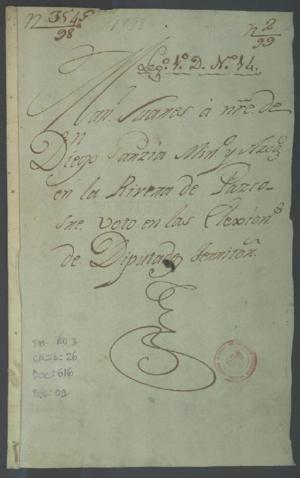 n 354
98
n 2
99
1793
Leg.º 1.º D. N.º 14.
Man.l Suares á nre. de
Dn
Diego Garzia Min.o y Azog.
en la Rivera de Pasco-
sre. voto en las Elexion.s
de Diputados Territor.
TM- AO 3
CAJA: 26
DOC: 616